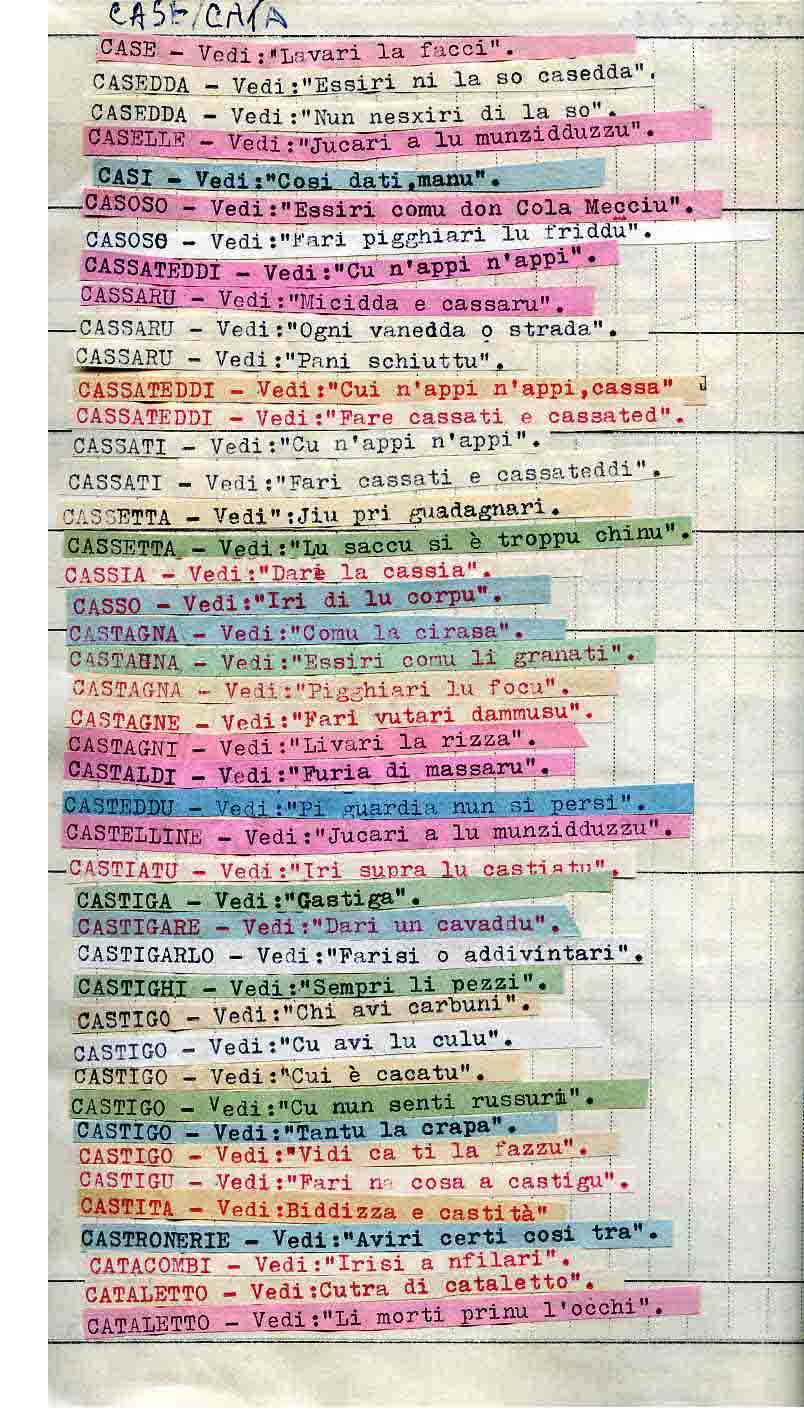 CASE/CATA
CASE - Vedi:"Lavari la facci".
CASEDDA - Vedi:"Essiri ni la so casedda".
CASEDDA - Vedi:"Nun nesxiri di la so".
CASELLE - Vedi:"Jucari a lu munzidduzzu".
CASI - Vedi:"Cosi dati,manu".
CASOSO - Vedi:"Essiri comu don Cola Mecciu".
CASOSO - Vedi:"Fari pigghiari lu friddu".
CASSATEDDI - Vedi:"Cu n'appi n'appi".
CASSARU - Vedi:"Micidda e cassaru".
CASSARU - Vedi:"Ogni vanedda o strada".
CASSARU - Vedi:"Pani schiuttu".
CASSATEDDI - Vedi:"Cui n'appi n'appi,cassa"
CASSATEDDI - Vedi:"Fare cassati e cassated".
CASSATI - Vedi:"Cu n'appi n'appi".
CASSATI - Vedi:"Fari cassati e cassateddi".
CASSETTA - Vedi":Jiu pri guadagnari.
CASSETTA - Vedi:"Lu saccu si è troppu chinu".
CASSIA - Vedi:"Dari la cassia".
CASSO - Vedi:"Iri di lu corpu".
CASTAGNA - Vedi:"Comu la cirasa".
CASTAHNA - Vedi:"Essiri comu li granati".
CASTAGNA - Vedi:"Pigghiari lu focu".
CASTAGNE - Vedi:"Fari vutari dammusu".
CASTAGNI - Vedi:"Livari la rizza".
CASTALDI - Vedi:"Furia di massaru".
CASTEDDU - Vedi:"Pi guardia nun si persi".
CASTELLINE - Vedi:"Jucari a lu munzidduzzu".
CASTIATU - Vedi:"Iri supra lu castiatu".
CASTIGA - Vedi:"Gastiga".
CASTIGARE - Vedi:"Dari un cavaddu".
CASTIGARLO - Vedi:"Farisi o addivintari".
CASTIGHI - Vedi:"Sempri li pezzi".
CASTIGO - Vedi:"Chi avi carbuni".
CASTIGO - Vedi:"Cu avi lu culu".
CASTIGO - Vedi:"Cui è cacatu".
CASTIGO - Vedi:"Cu nun senti russuri".
CASTIGO - Vedi:"Tantu la crapa".
CASTIGO - Vedi:"Vidi ca ti la fazzu".
CASTIGU - Vedi:"Fari na cosa a castigu".
CASTITA - Vedi:Biddizza e castità"
CASTRONERIE - Vedi:"Aviri certi cosi tra".
CATACOMBI - Vedi:"Irisi a nfilari".
CATALETTO - Vedi:Cutra di cataletto".
CATALETTO - Vedi:"Li morti prinu l'occhi".